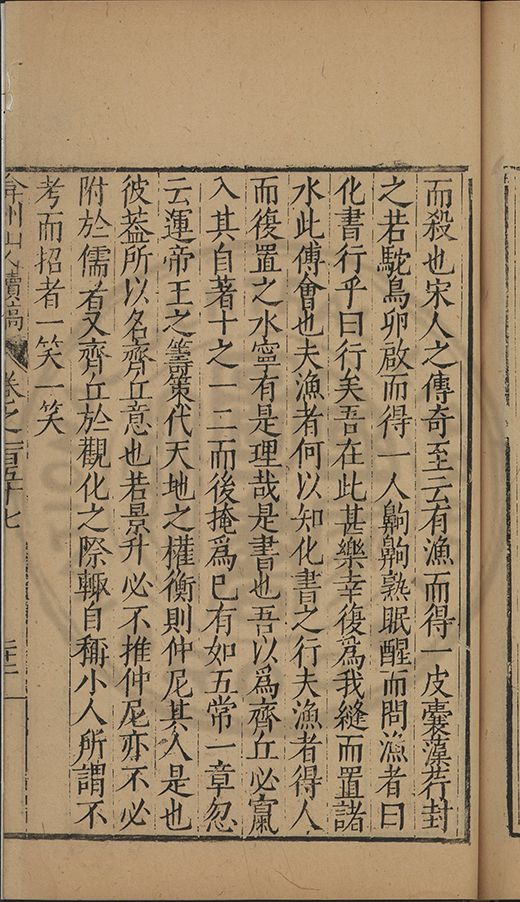 而殺也宋人之傳奇至云有漁而得一皮囊藻荇封
之若駝鳥卵啟而得一人齁齁熟眠醒而問漁者曰
化書行乎曰行矣吾在此甚樂幸復爲我縫而置諸
水此傅會也夫漁者何以知化書之行夫漁者得人
而後置之水寧有是理哉是書也吾以爲齊丘必竄
入其自著十之一二而後掩爲巳有如五常一章忽
云運帝王之籌策代天地之權衡則仲尼其人是也
彼葢所以名齊丘意也若景升必不推仲尼亦不必
附於儒者又齊丘於觀化之際輙自稱小人所謂不
考而招者一笑一笑
弇州山人續稿 卷之一百五十七